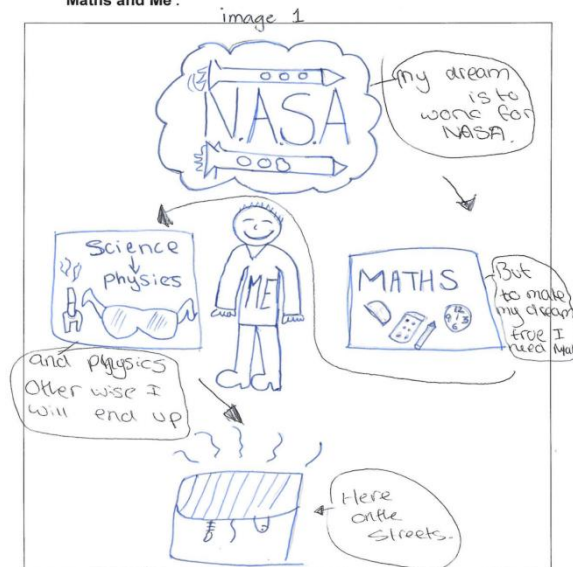 Maths and Me :
image 1
N.A.S.A
My dream
is to
work for
NASA.
Science
physics
ME
MATHS
12
9
3
6
But
to make
my dream
true I
need
and physics
Other wise I
will end up
Here
on the
streets.